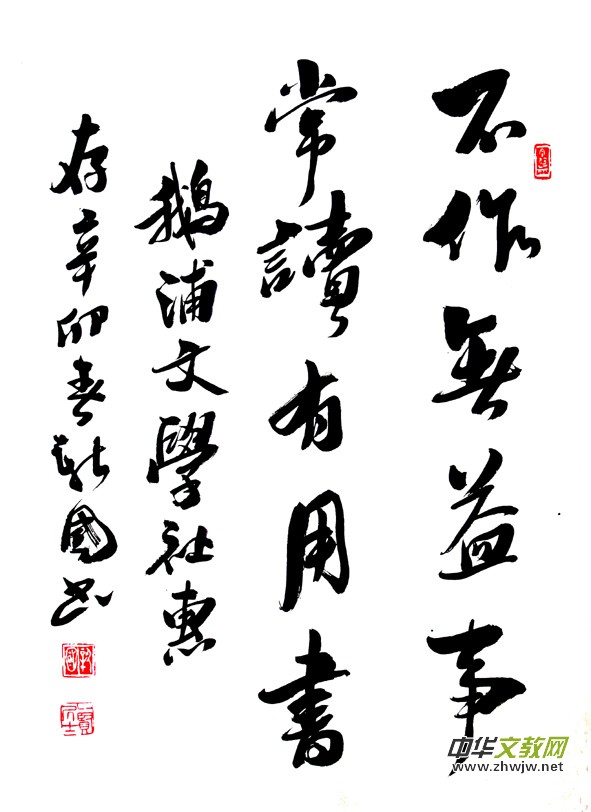 不作無益事
常讀有用書
鵝浦文學社惠
存辛卯春國书
中华文教网
www.zhwjw.net